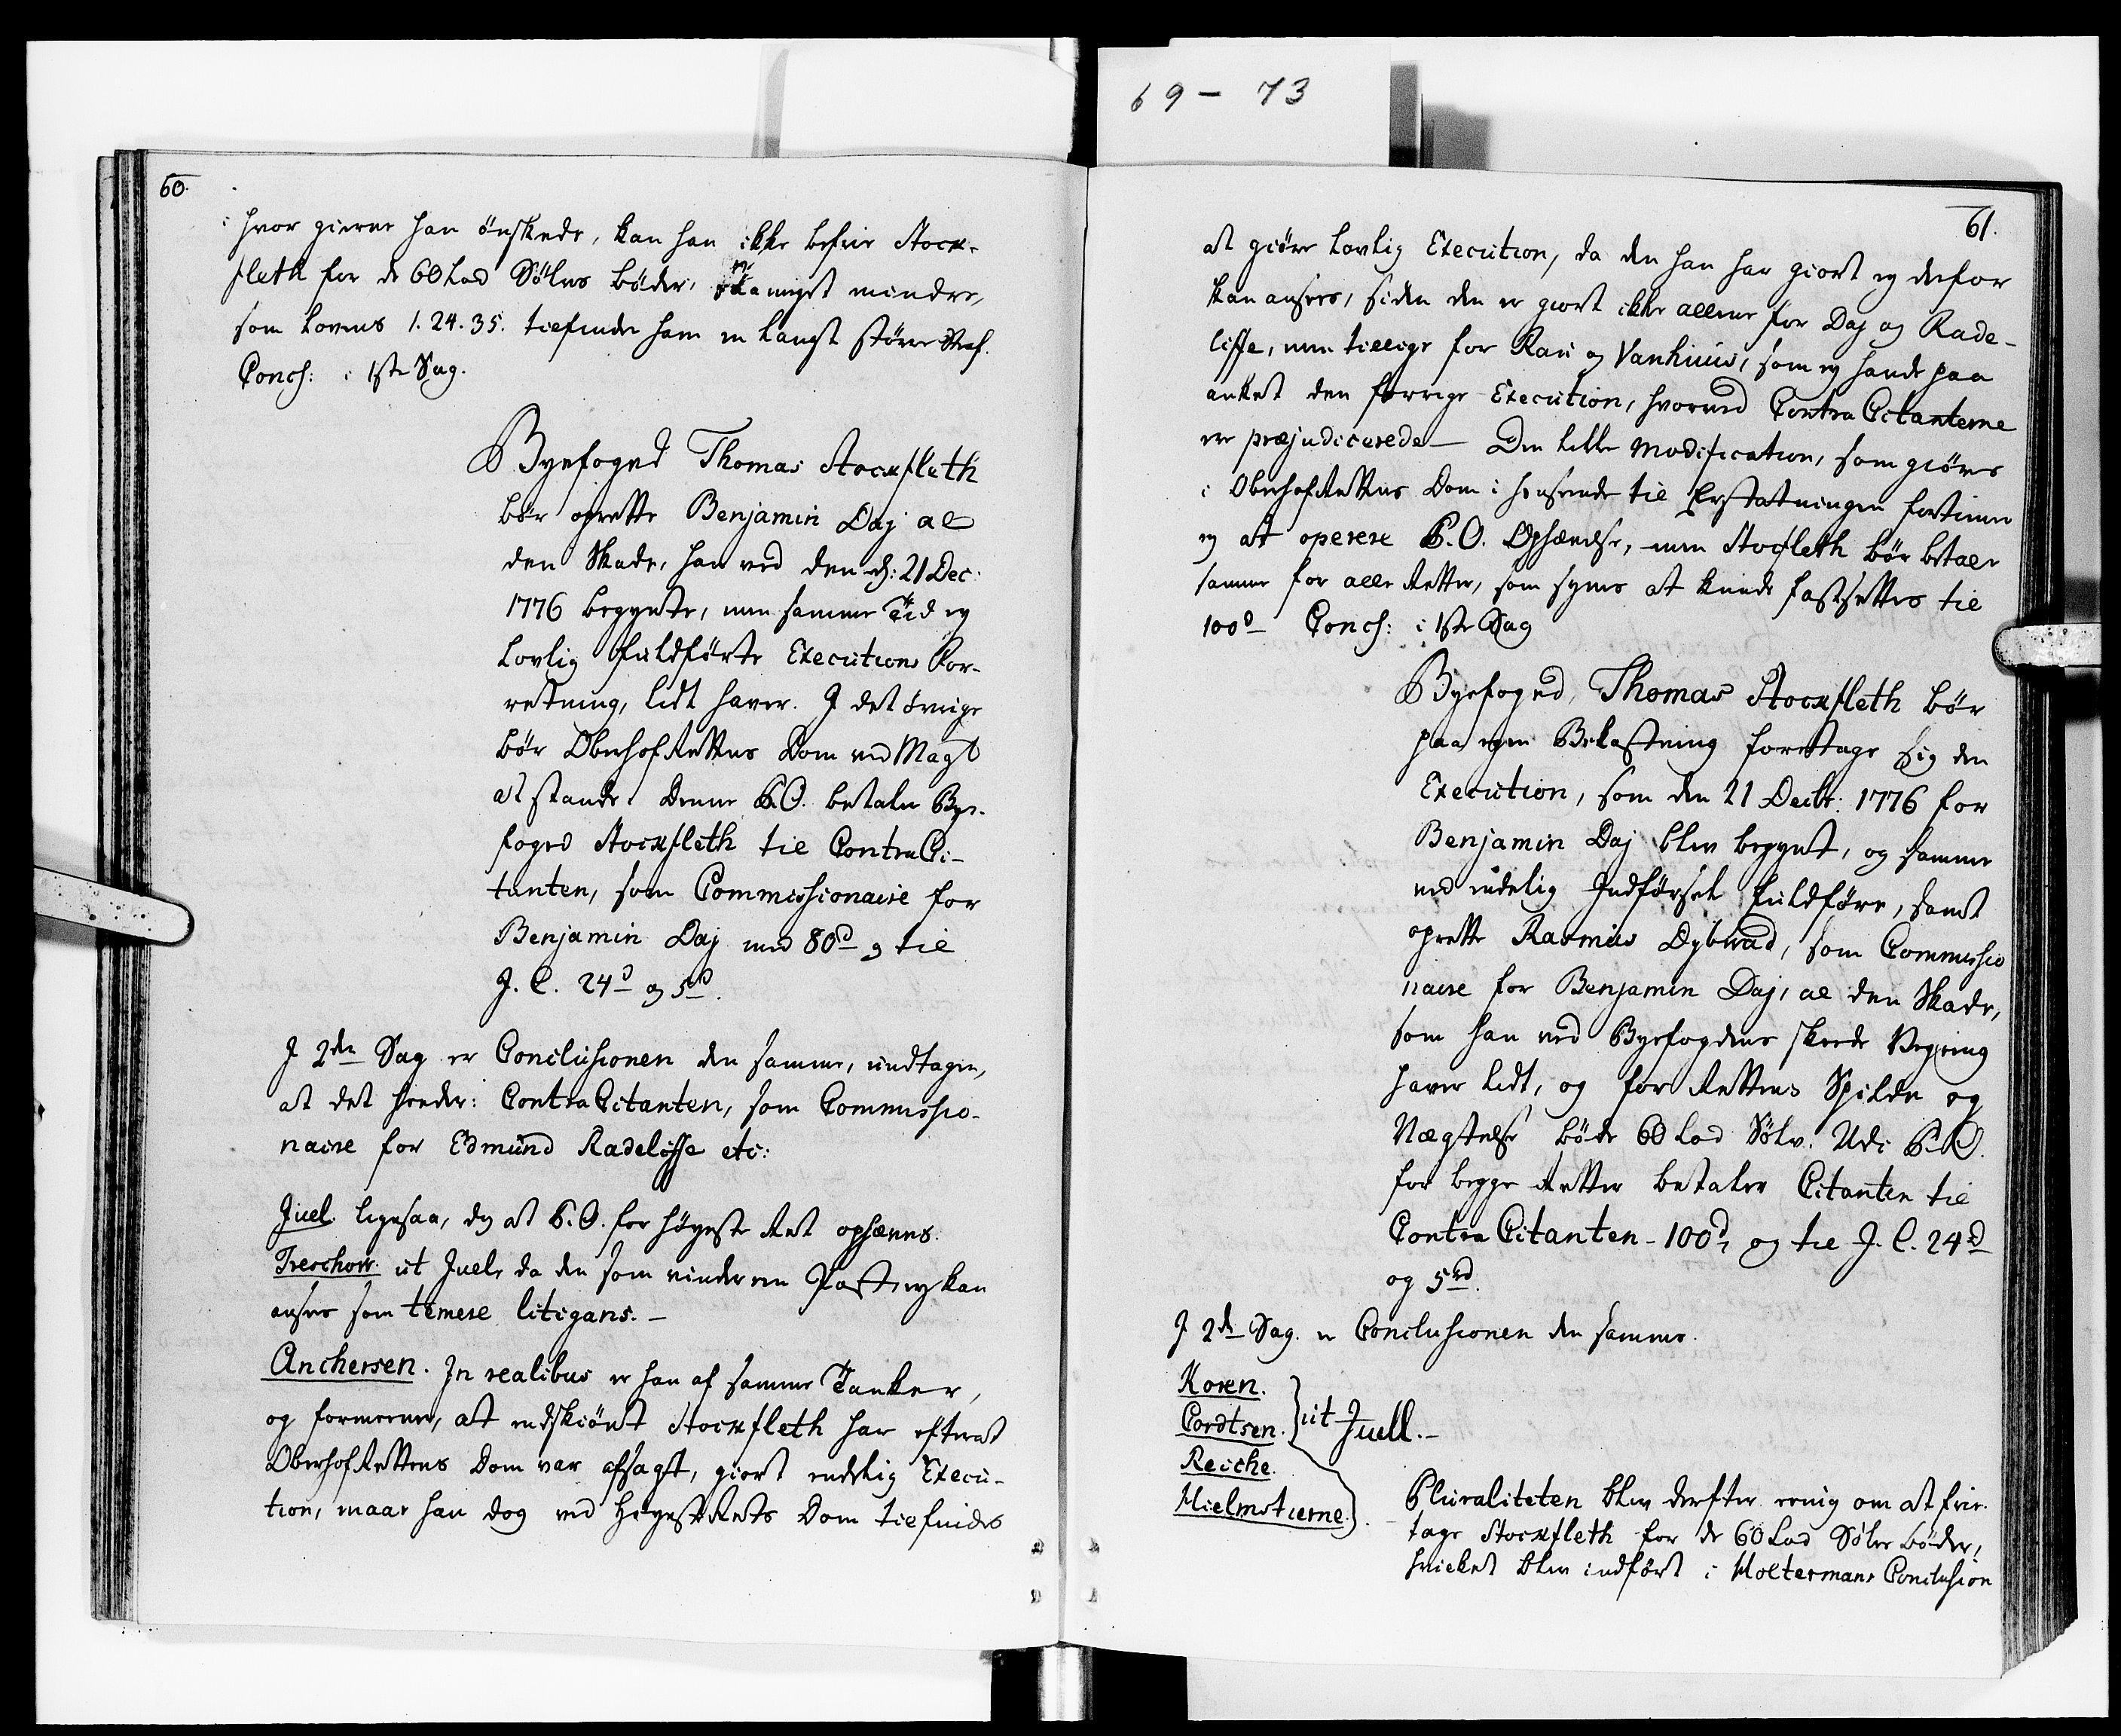 69 - 73
60.
hvor gierne han ønskede, kan han ikke befrie Stock-
fleth for de 60 Lod Sølvs Bøder, saameget mindre,
som Lovens 1. 24. 35. tilfinder ham en langt større Straf.
Concl: i 1ste Sag.
Byefoged Thomas Stockfleth
bør oprette Benjamin Daj al
den Skade, han ved den d: 21 Dec:
1776 begyndte, men samme Tid ey
lovlig fuldførte Executions For-
retning, lidt haver. I det øvrige
bør OberhofRettens Dom ved Magt
at stande. Denne P.O. betaler Bye-
foged Stockfleth til ContraCi-
tanten, som Commissionaire for
Benjamin Daj med 80d og til
J. C. 24d og 5rd.
I 2den Sag er Conclusionen den samme, undtagen,
at det heeder: ContraCitanten, som Commissio-
naire for Edmund Radeliffe etc:
Juel. ligesaa, dog at P.O. for høyeste Ret ophæves.
Treschow. ut Juel, da den som vinder een Post, ey kan
ansees som temere litigans. -
Anchersen. In realibus er han af samme Tanker,
og formeener, at endskiønt Stockfleth har efterat
OberhofRettens Dom var afsagt, giort endelig Execu-
tion, maae han dog ved HøyesteRets Dom tilfindes
61.
at giøre lovlig Execution, da den han har giort ey derfor
kan ansees, siden den er giort ikke allene for Daj og Rade-
liffe, men tillige for Rau og Vanhuus, som ey havde paa
anket den forrige Execution, hvorved Contra Citanterne
ere præjudicerede - Den lille Modification, som giøres
i OberhofRettens Dom i henseende til Erstatningen fortiener
ey at operere P.O. Ophævelse, men Stocfleth bør betale
samme for alle Retter, som synes at kunde fastsættes til
100d - Concl: i 1ste Sag
Byefoged Thomas Stockfleth bør
paa egen Bekostning foretage sig den
Execution, som den 21 Decbr: 1776 for
Benjamin Daj blev begynt, og samme
ved endelig Indførsel fuldføre, samt
oprette Rasmus Dybwad, som Commissio
naire for Benjamin Daj, al den Skade,
som han ved Byefogdens skeede Vegring
haver lidt, og for Rettens Spilde og
Nægtelse bøde 60 Lod Sølv. Udi P.O.
for begge Retter betaler Citanten til
Contra Citanten - 100d, og til J. C. 24d
og 5rd.
I 2den Sag er Conclusionen den samme.
Koren.
Cordtsen. ut Juell. -
Reiche.
Hielmstierne.
Pluraliteten blev derefter eenig om at frie-
tage Stockfleth for de 60 Lod Sølv Bøder,
hvilket blev indført i Holtermans Conclusion